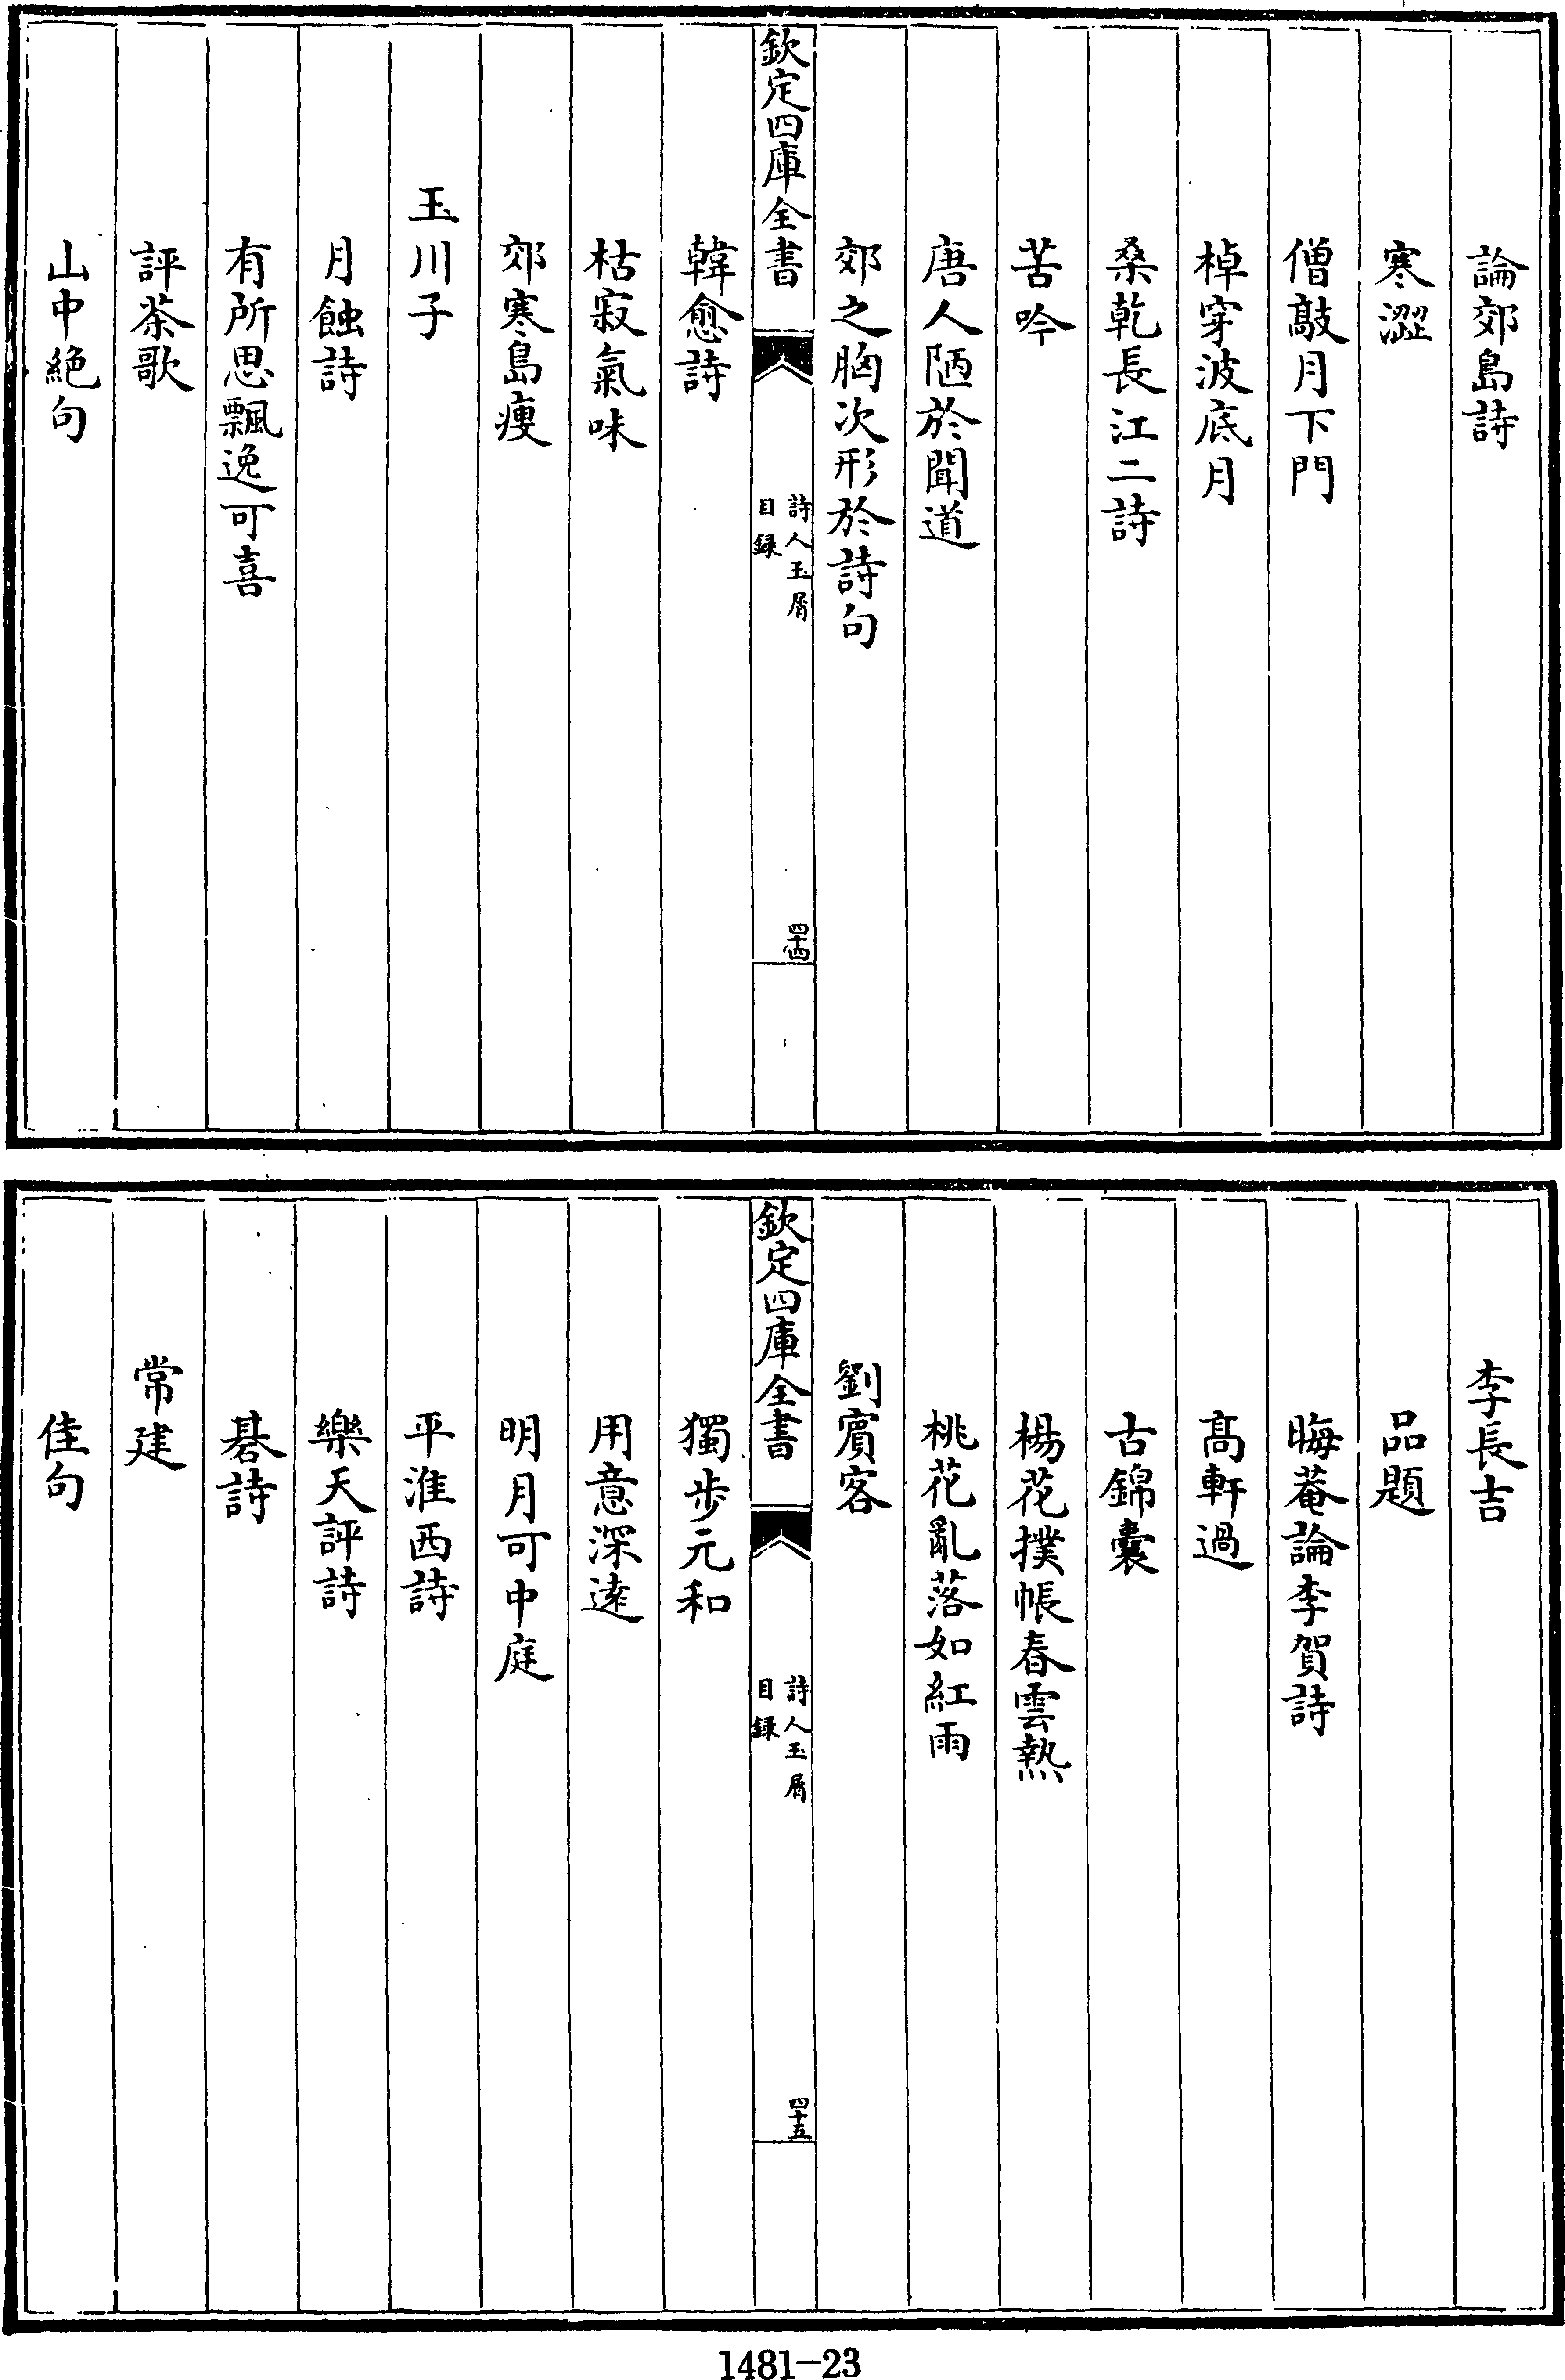 論郊島詩
寒澀
僧敲月下門
棹穿波底月
桑乾長江二詩
苦吟
唐人陋於聞道
郊之胸次形於詩句
欽定四庫全書
詩人玉屑
目録
四十四
韓愈詩
枯寂氣味
郊寒島瘦
玉川子
月蝕詩
有所思飄逸可喜
評茶歌
山中絶句
李長吉
品題
晦菴論李賀詩
髙軒過
古錦囊
楊花撲帳春雲熱
桃花亂落如紅雨
劉賓客
欽定四庫全書
詩人玉屑
目録
四十五
獨歩元和
用意深逺
明月可中庭
平淮西詩
樂天評詩
碁詩
常建
佳句
1481-23